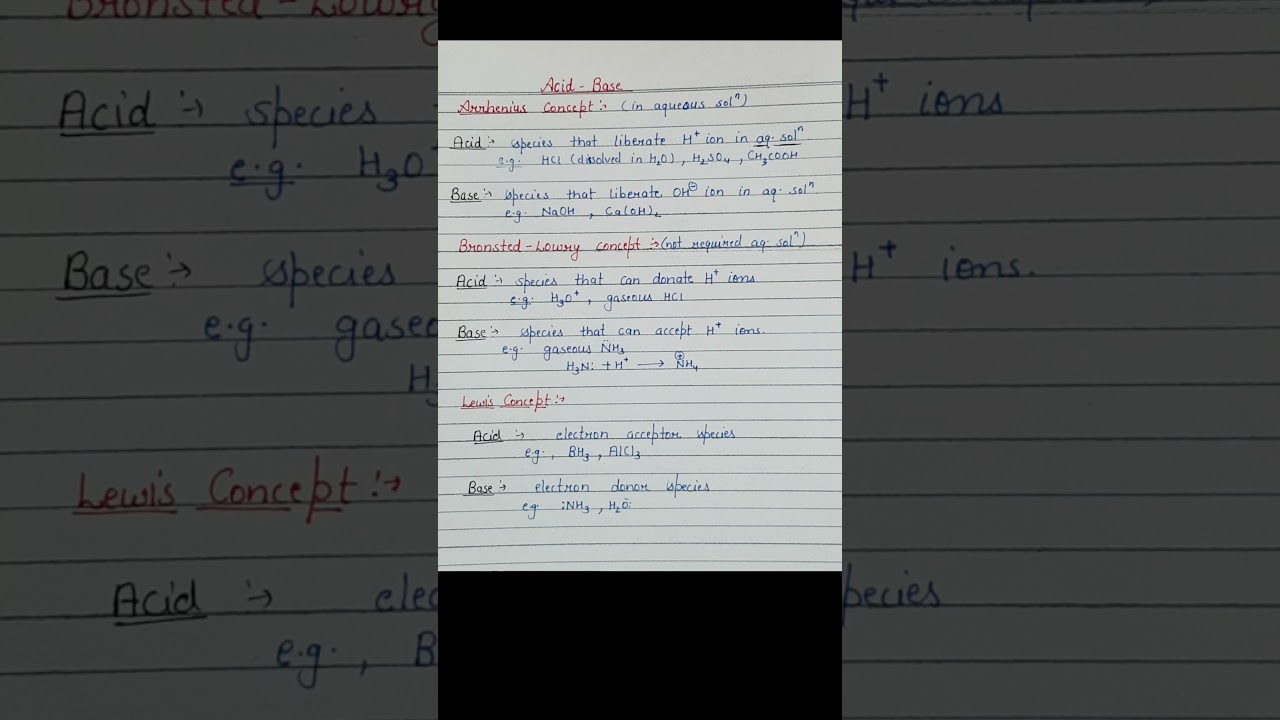 Acid - Base
Arrhenius Concept :- (in aqueous solⁿ)
Acid :- species that liberate H⁺ ion in aq. solⁿ
e.g. HCl (dissolved in H₂O), H₂SO₄, CH₃COOH
Base :- species that liberate OH⊖ ion in aq. solⁿ
e.g. NaOH, Ca(OH)₂
Bronsted-Lowry concept :- (not required aq. solⁿ)
Acid :- species that can donate H⁺ ions
e.g. H₃O⁺, gaseous HCl
Base :- species that can accept H⁺ ions.
e.g. gaseous N̈H₃
H₃N: + H⁺ → ⊕NH₄
Lewis Concept :-
Acid :- electron acceptor species
e.g., BH₃, AlCl₃
Base :- electron donor species
eg :NH₃, H₂Ö:
Bronsted-Lowry
Acid :- species H⁺ ions
e.g. H₃O⁺
Base :- species H⁺ ions.
e.g. gaseo
H₃
Lewis Concept :-
Acid :- elec pecies
e.g., B